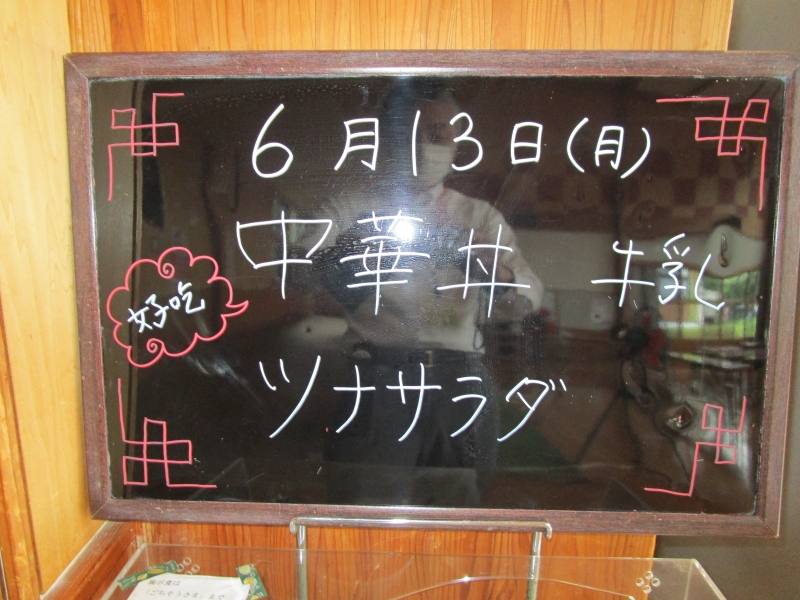 6月13日(月)
中華丼 牛乳
好吃
ツナサラダ